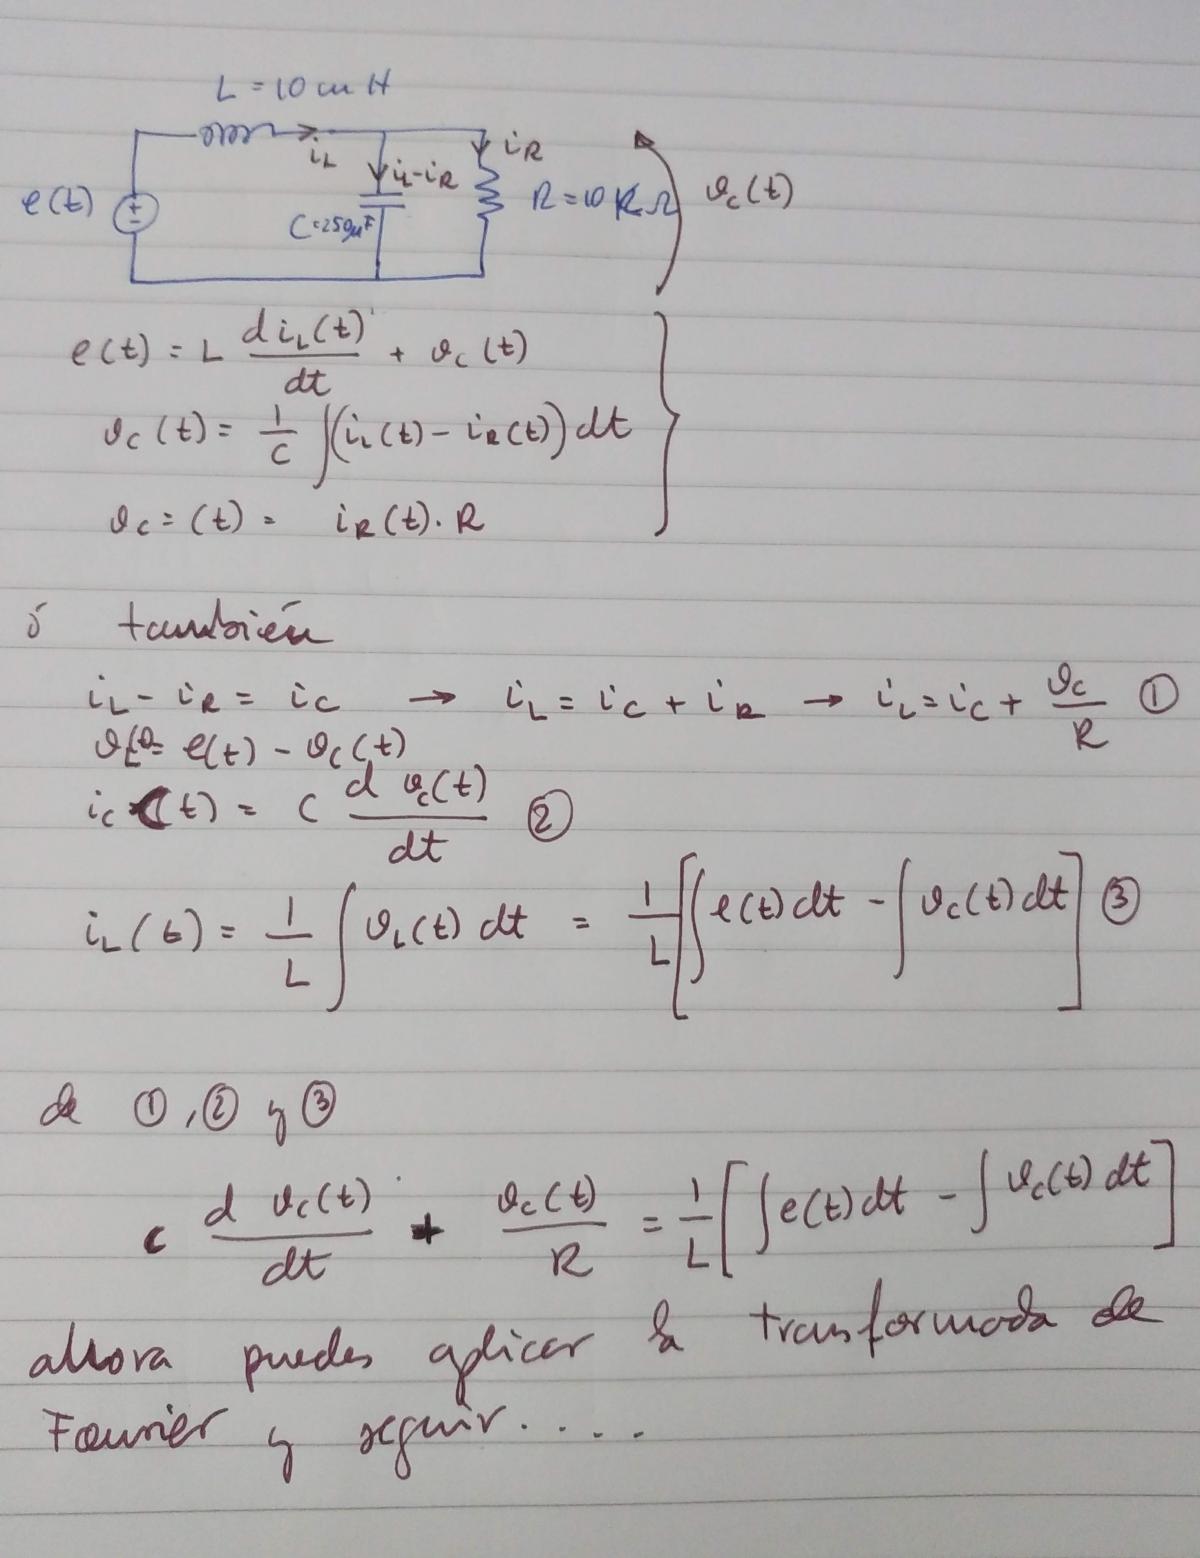 L = 10 mH
e(t)
iL
iL-iR
iR
C=250µF
R=10KΩ
υc(t)
e(t) = L d iL(t)/dt + υc(t)
υc(t) = 1/C ∫(iL(t) - iR(t)) dt
υc = (t) = iR(t). R
ó también
iL - iR = ic → iL = ic + iR → iL = ic + υc/R ①
= e(t) - υc(t)
ic (t) = C d υc(t)/dt ②
iL(t) = 1/L ∫ υL(t) dt = 1/L [∫ e(t) dt - ∫ υc(t) dt] ③
de ①, ② y ③
C d υc(t)/dt + υc(t)/R = 1/L [∫ e(t) dt - ∫ υc(t) dt]
ahora puedes aplicar la transformada de
Fourier y seguir.....